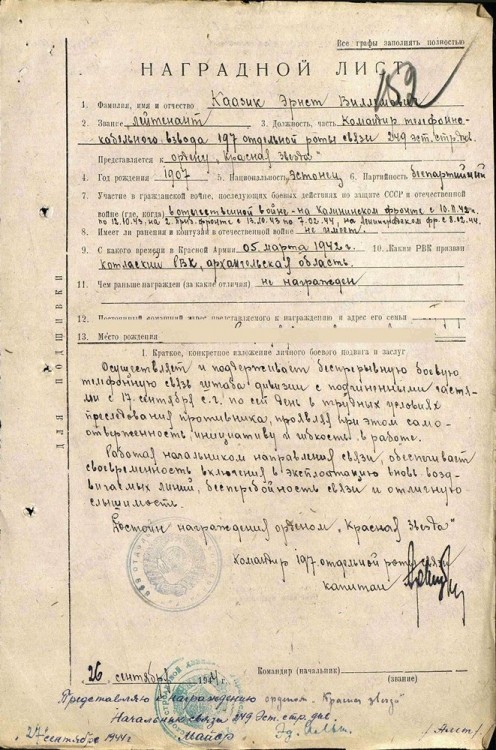 Все графы заполнять полностью
152
НАГРАДНОЙ ЛИСТ
1. Фамилия, имя и отчество Каазик Эрнст Виллемович
2. Звание лейтенант 3. Должность, часть Командир телефонно-
кабельного взвода 197 отдельной роты связи 249 эст. стр. див.
Представляется к ордену „Красная звезда"
4. Год рождения 1907 5. Национальность эстонец 6. Партийность беспартийный
7. Участие в гражданской войне, последующих боевых действиях по защите СССР и отечественной
войне (где, когда) в отечественной войне - на Калининском фронте с 10.11.42г.
по 12.10.43 на 2 Приб. фронте с 13.10.43 по 7.02.44, на Ленинградском фр. с 8.02.44.
8. Имеет ли ранения и контузии в отечественной войне не имеет
9. С какого времени в Красной Армии 05 марта 1942г. 10. Каким РВК призван
котлаский РВК, архангельская область.
11. Чем раньше награжден (за какие отличия) не награжден
12. Постоянный домашний адрес представляемого к награждению и адрес его семьи
13. Место рождения
ДЛЯ ПОДШИВКИ
I. Краткое, конкретное изложение личного боевого подвига и заслуг
Осуществляет и поддерживает беспрерывную боевую
телефонную связь штаба дивизии с подчиненными частя-
ми с 17 сентября с.г. по сей день в трудных условиях
преследования противника, проявляя при этом само-
отверженность, инициативу и гибкость в работе.
Работая начальником направления связи, обеспечивает
своевременность включения в эксплоатацию вновь возд-
вигаемых линий, бесперебойность связи и отличную
слышимость.
Достоин награждения орденом „Красная звезда"
Командир 197 отдельной роты связи
капитан
26 сентября 1944 г. Командир (начальник)
(звание)
Представляю к награждению орденом „Красная звезда"
Начальник связи 249 Эст. стр. див.
27 сентября 1944г. майор